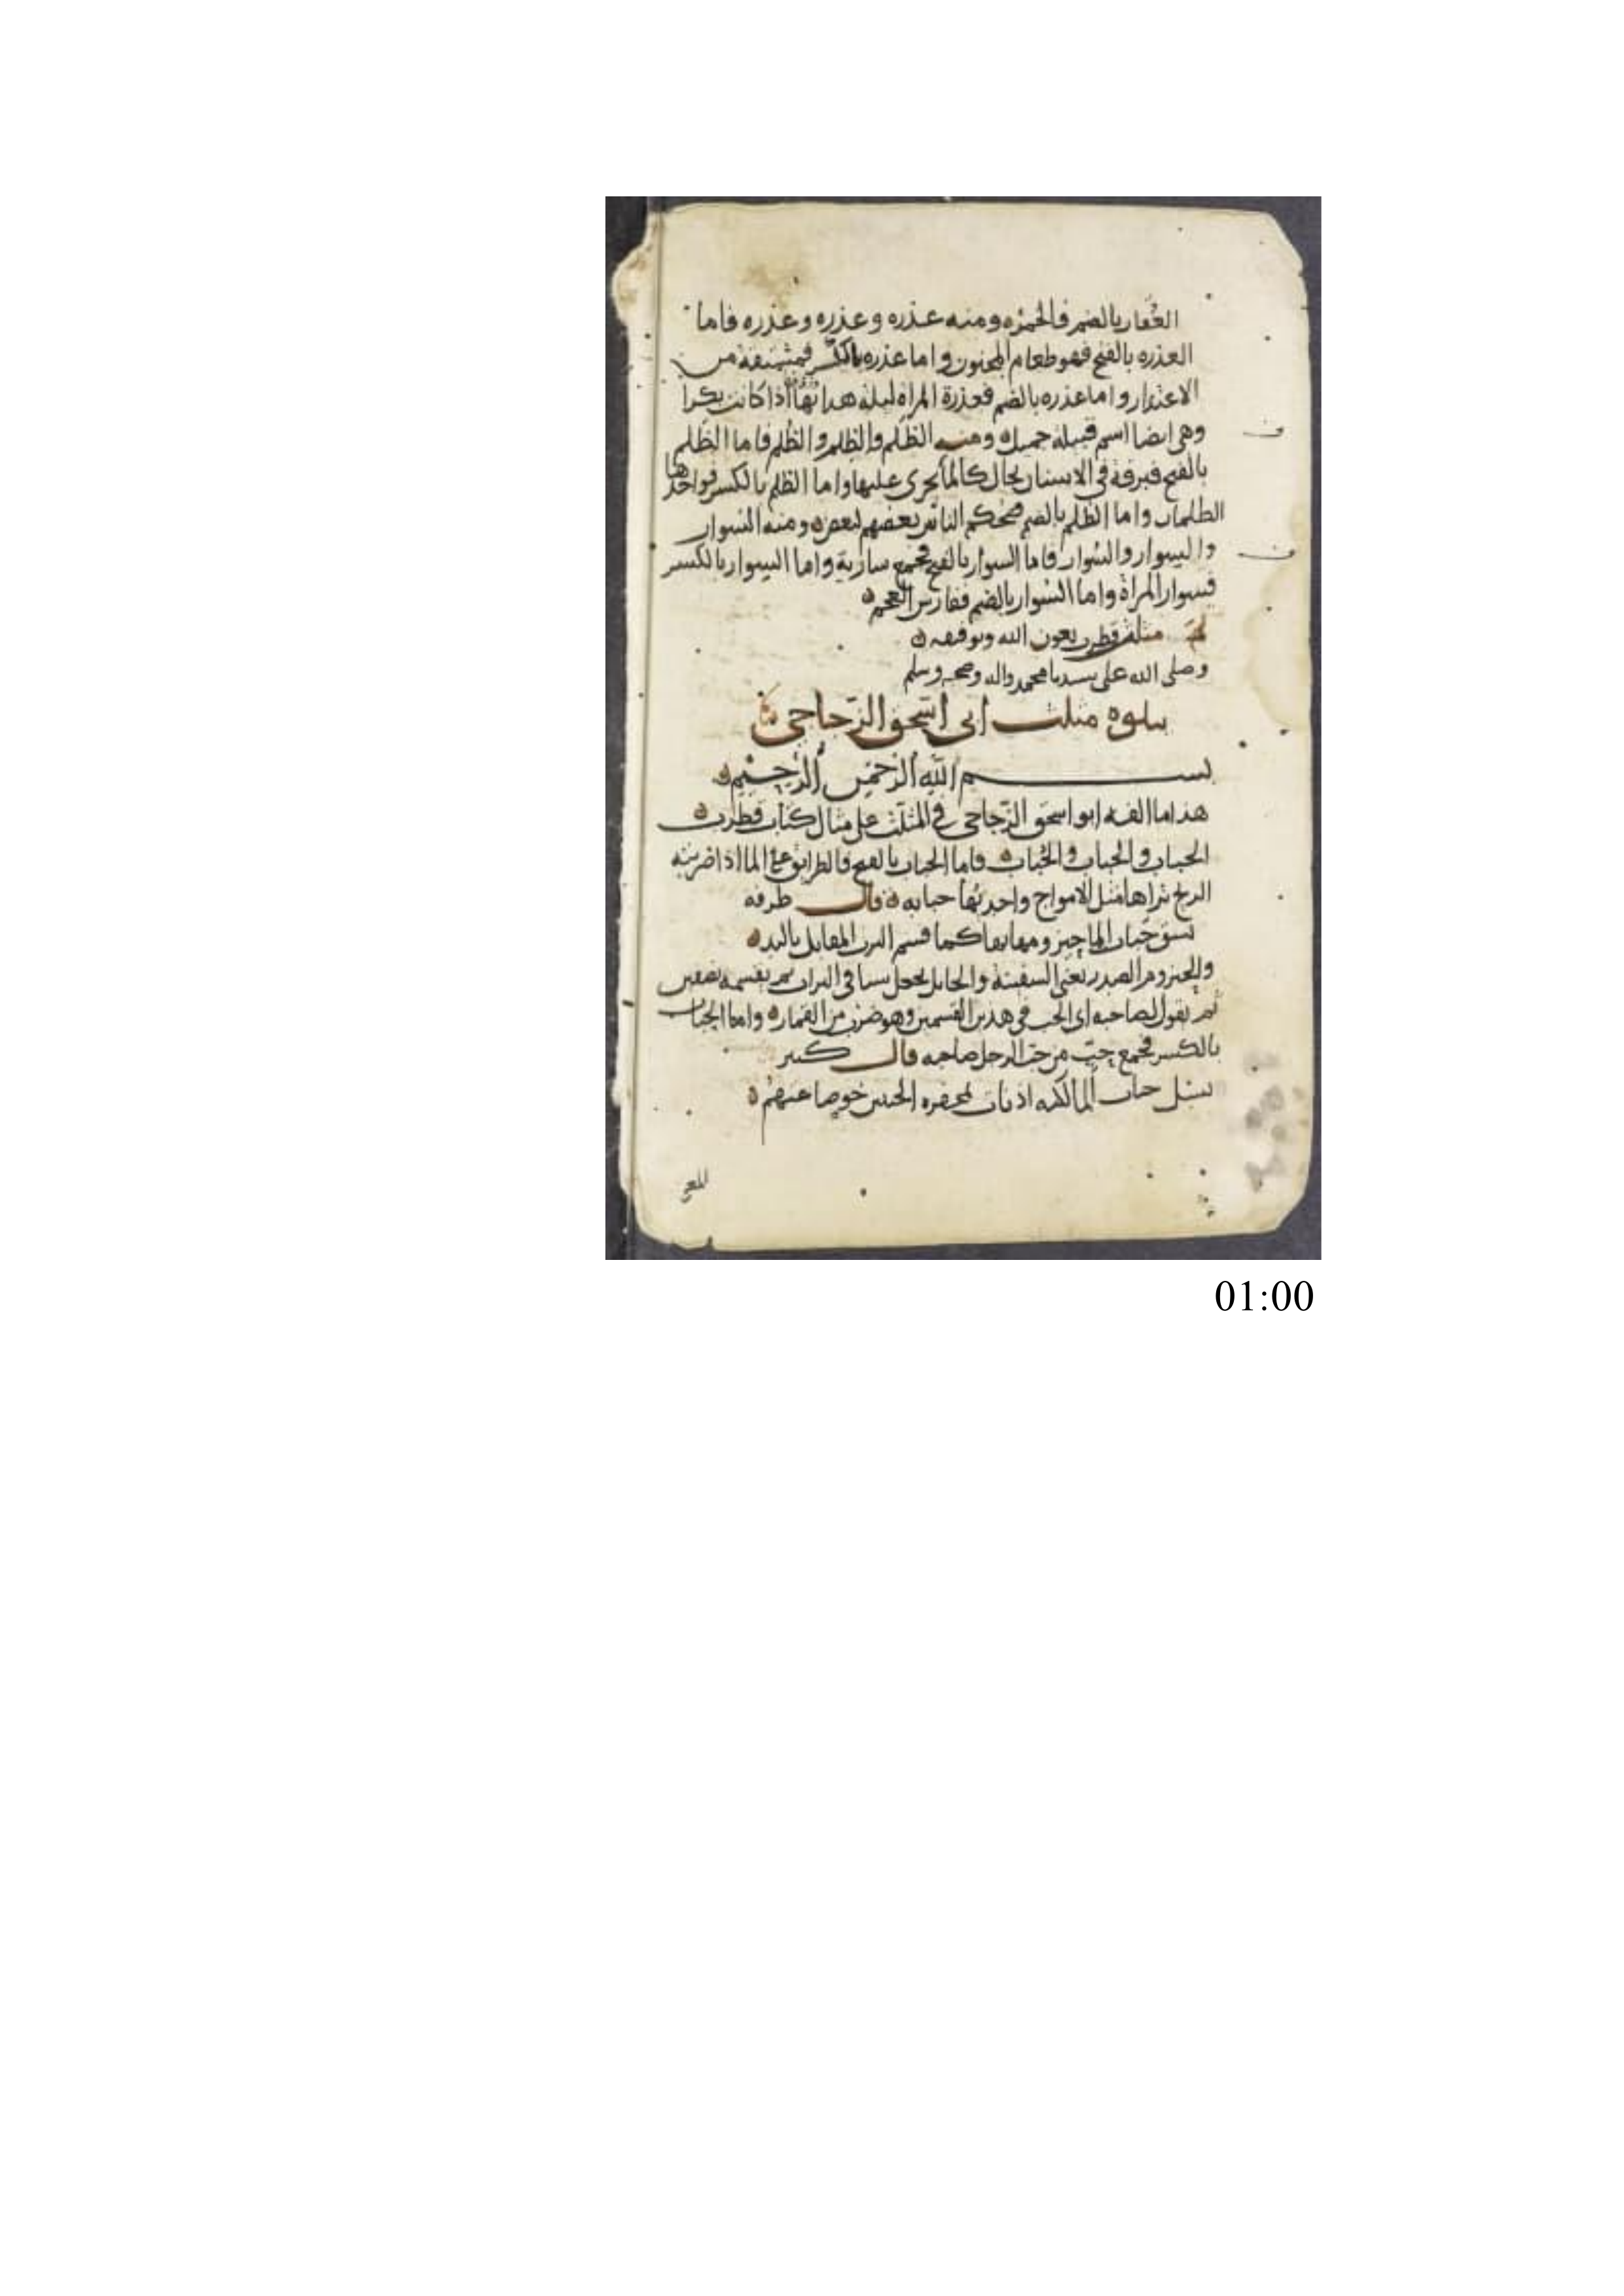 العقار بالضم فالخمره ومنه عذره وعذره وعذره فاما
العذره بالفتح فهو طعام المجنون واما عذره بالكسر فمشتقة من
الاعتذار واما عذره بالضم فعذرة المراه ليلة هدائها اذا كانت بكرا
وهي ايضا اسم قبيلة جميل ومنه الظَلم والظِلم والظُلم فاما الظَلم
بالفتح فبرقة في الاسنان يخال كالما يجرى عليها واما الظلم بالكسر فواحدها
الظلمات واما الظلم بالضم فحكم الناس بعضهم لبعض ومنه السوار
والسوار والسوار فاما السوار بالفتح فجمع سارية واما السوار بالكسر
فسوار المراة واما السوار بالضم ففارس العجم
تم مثلث قطرب بعون الله وتوفيقه
وصلى الله على سيدنا محمد واله وصحبه وسلم
يتلوه مثلث ابي اسحق الزجاجي
بسم الله الرحمن الرحيم
هذا ما الفه ابو اسحق الزجاجي في المثلث على مثال كتاب قطرب
الحباب والحباب والحباب فاما الحباب بالفتح فالطرايق على الما اذا ضربته
الريح تراها مثل الامواج واحدتها حبابه قال طرفه
يشق حباب الما حيزومها بها كما قسم الترب المفايل باليد
والحيزوم الصدر يعني السفينة والحايل يجعل شيا في التراب ثم يقسمه نصفين
ثم يقول لصاحبه اى الخب في هذين القسمين وهو ضرب من القمار واما الحباب
بالكسر فجمع حِبّ من حب الرجل صاحبه قال كثير
حباب المالكيه اذ بات خوصا عيونهم
المعى
01:00